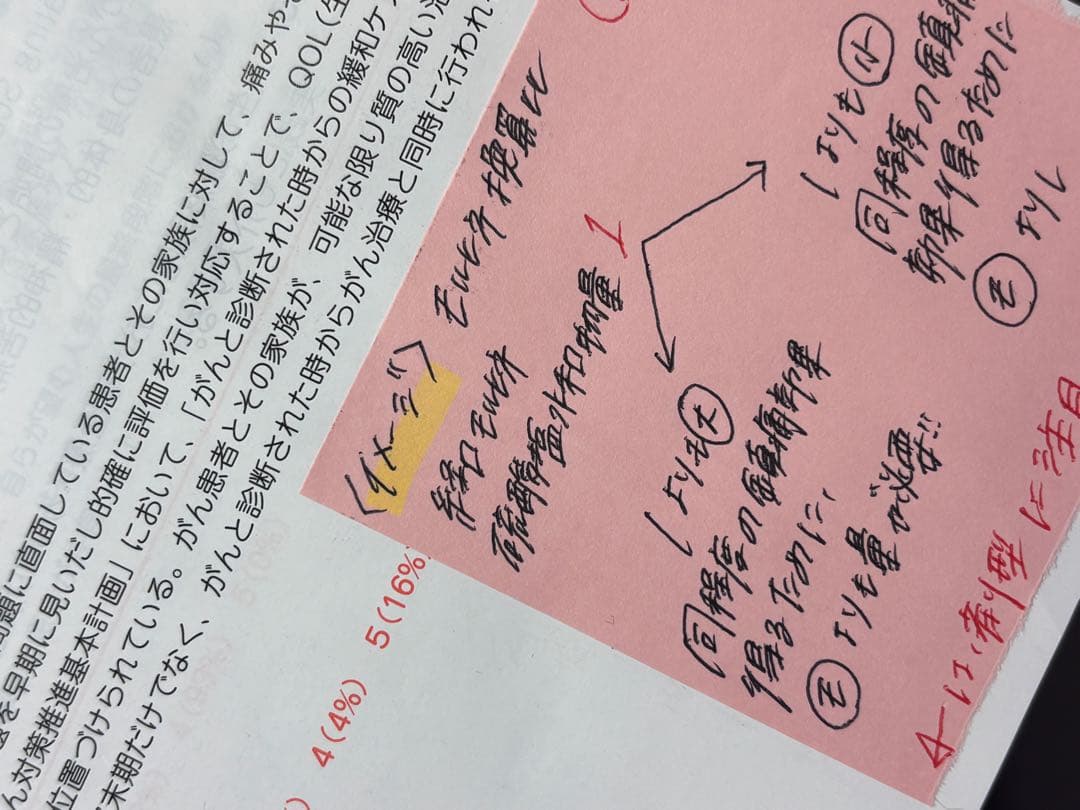 問題に直面している患者とその家族に対して、痛みや
を早期に見いだし的確に評価を行い対応することで、QOL(生
ん対策推進基本計画」において、「がんと診断された時からの緩和ケ
位置づけられている。がん患者とその家族が、可能な限り質の高い治
末期だけでなく、がんと診断された時からがん治療と同時に行われ
4(4%)
5(16%)
〈イメージ〉
モルヒネ換算比
経口モルヒネ
硫酸塩水和物量 1
1よりも大
同程度の鎮痛効果
得るために、
モ よりも量が必要!!
1よりも小
同程度の鎮痛
効果得るために
モ よりし
4-は、剤型に注目